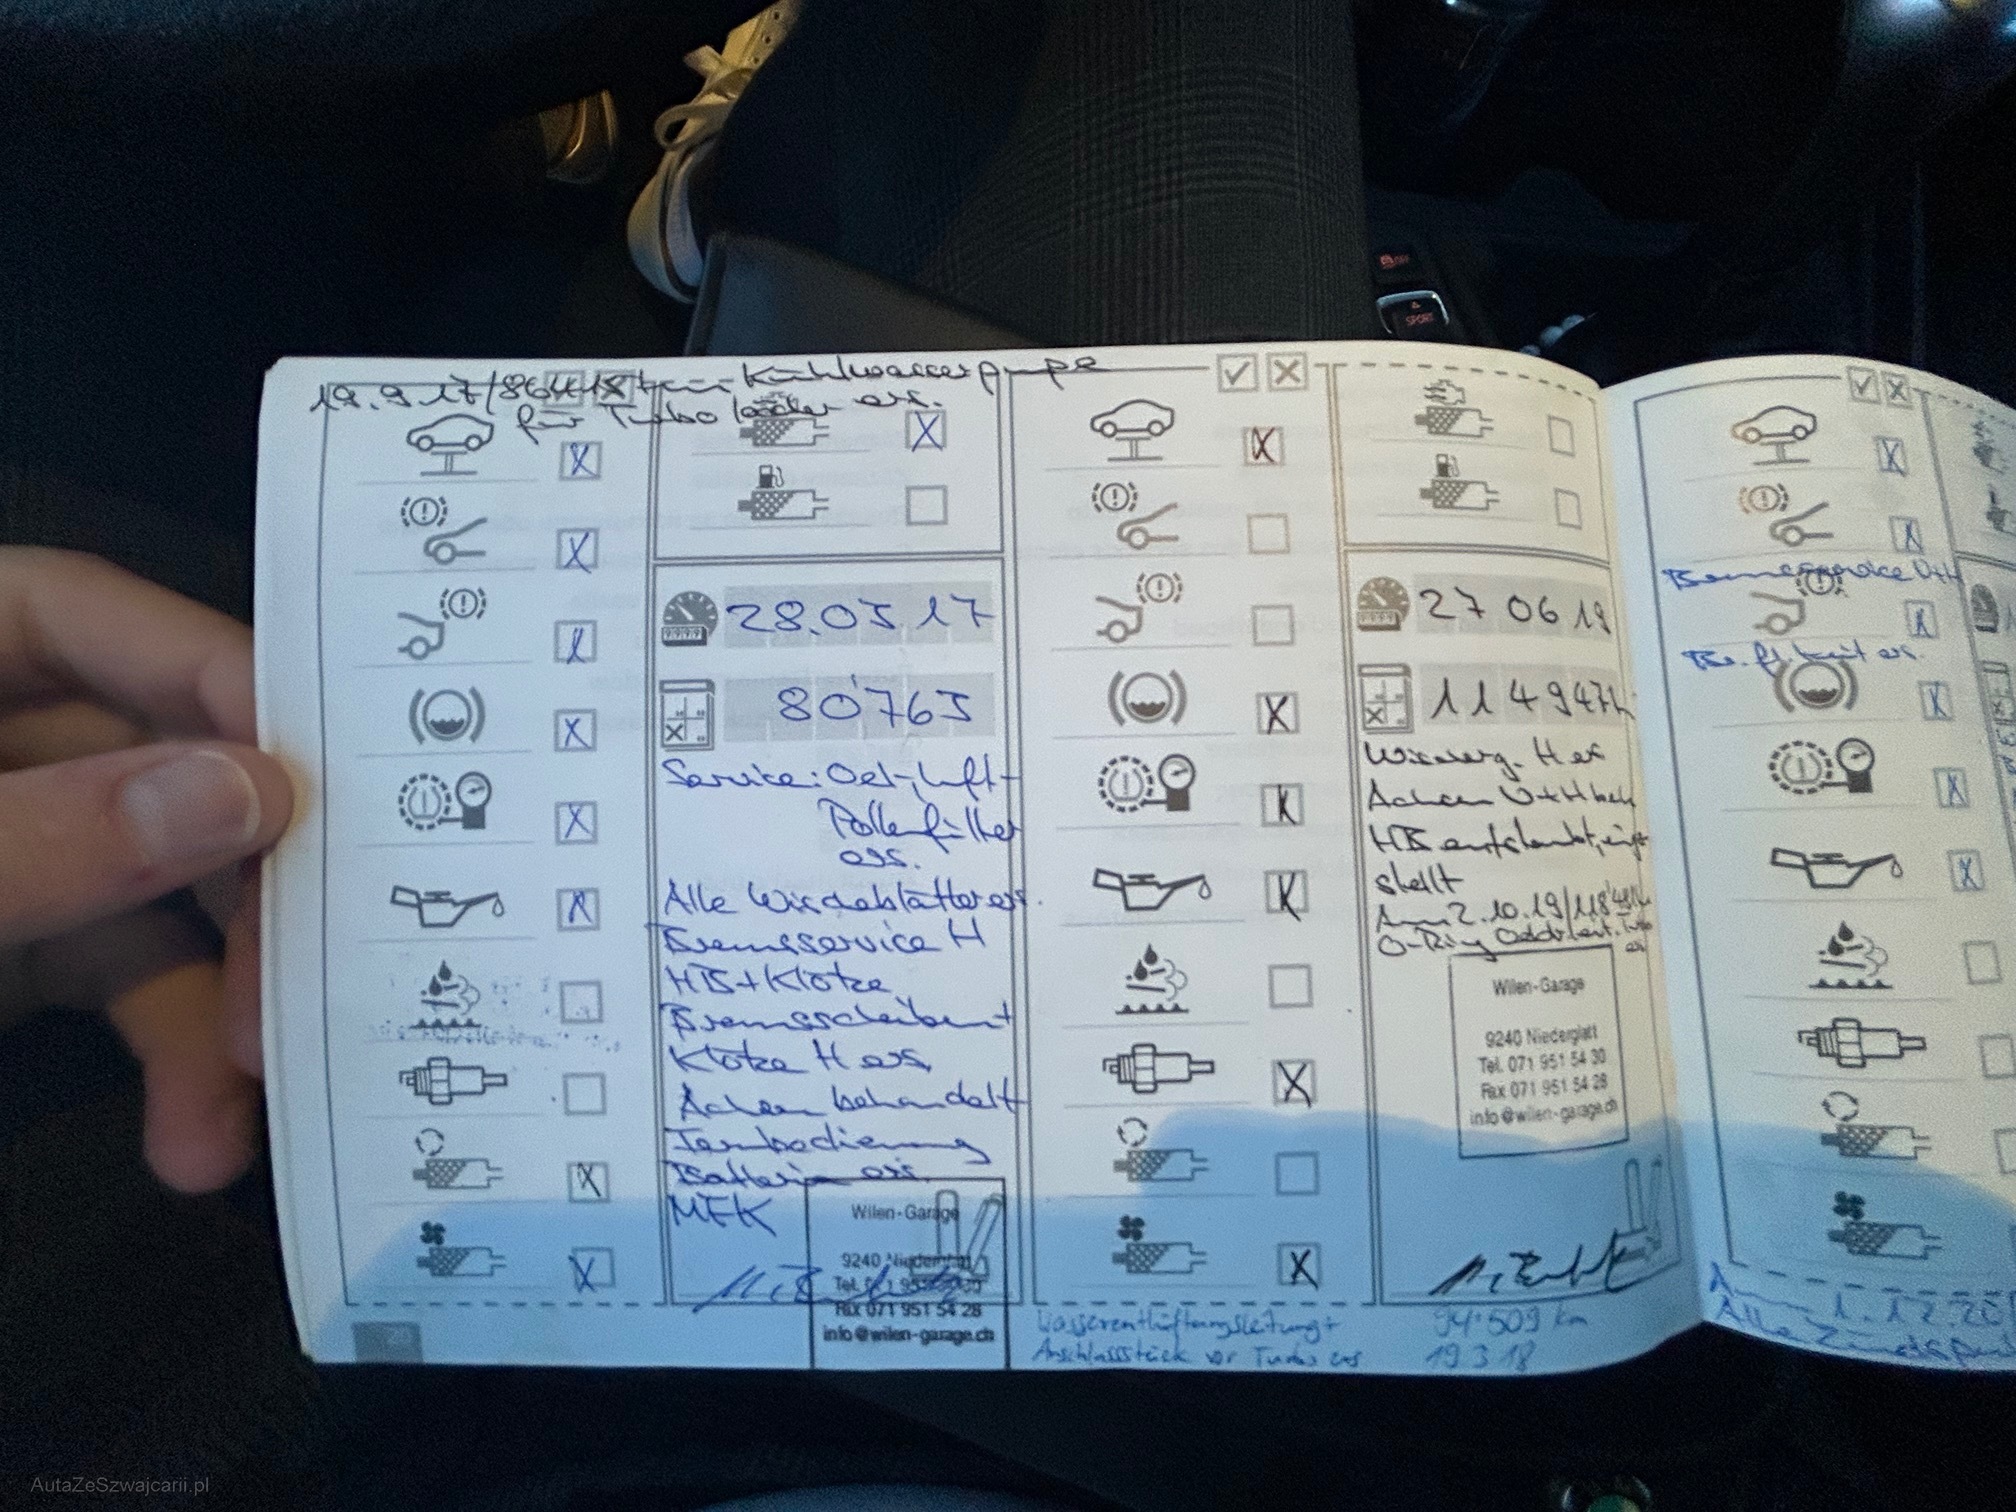 19.9.17/86418 km Kühlwasserpumpe
für Turbolader ers.
28.03.17
80'765
Service: Oel-, Luft-
Pollenfilter
ers.
Alle Wischblätter ers.
Bremsservice H
HB + Klötze
Bremsscheiben +
Klötze H ers.
Achsen behandelt
Fernbedienung
Batterie ers.
MFK
Wilen-Garage
9240 Niederglatt
Tel. 071 951 54 30
Fax 071 951 54 28
info@wilen-garage.ch
27 06 19
114947
Achsen V+H beh
HB entstaubt, einge
stellt
Am 2.10.19/118
O-Ring
ers
Wilen-Garage
9240 Niederglatt
Tel. 071 951 54 30
Fax 071 951 54 28
info@wilen-garage.ch
Wasserentlüftungsleitung +
Anschlussstück vor Turbo ers
94'509 km
19 3 18
Bremsservice V+H
Br.fl.keit ers.
1.12.20
Alle
OFF
SPORT
AutaZeSzwajcarii.pl